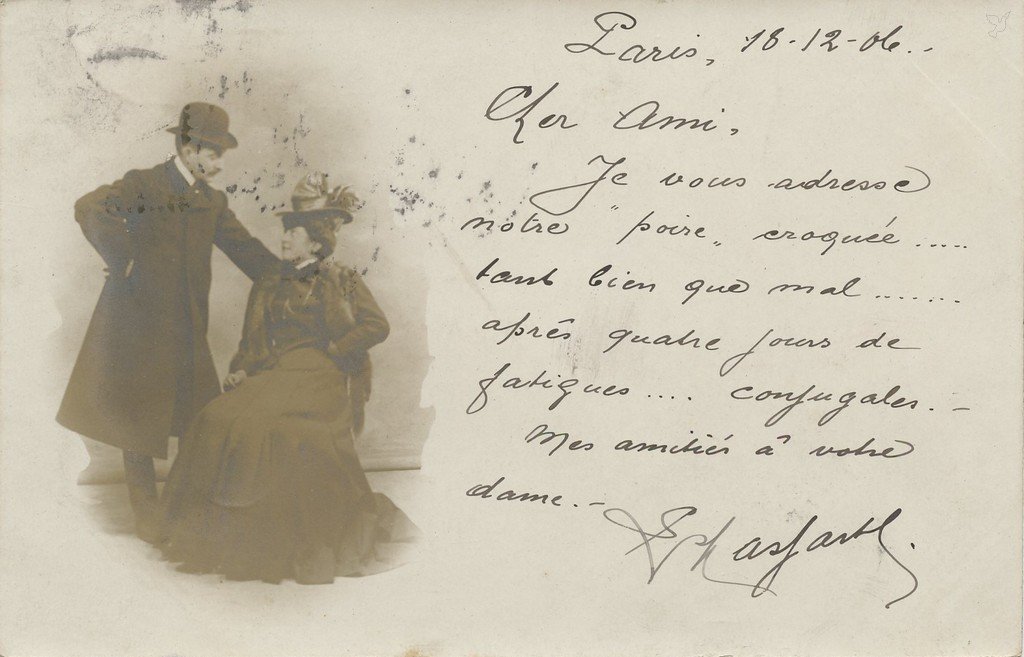 Paris, 18-12-06.-
Cher Ami,
Je vous adresse
notre "poire" croquée.....
tant bien que mal.......
après quatre jours de
fatigues.... conjugales.-
Mes amitiés à votre
dame.-